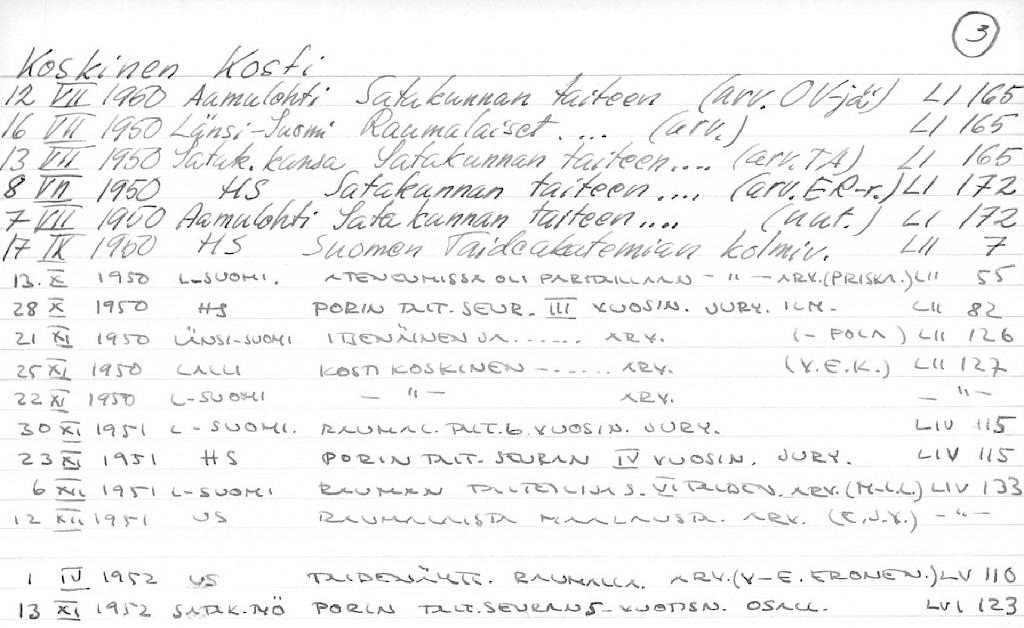 3
Koskinen Kosti
12 VII 1950 Aamulehti Satakunnan taiteen (arv. OV-jä) LI 165
16 VII 1950 Länsi-Suomi Raumalaiset.... (arv.) LI 165
13 VII 1950 Satak. kansa Satakunnan taiteen.... (arv. TA) LI 165
8 VII 1950 HS Satakunnan taiteen.... (arv. ER-r.) LI 172
7 VII 1950 Aamulehti Satakunnan taiteen.... (uut.) LI 172
17 IX 1950 HS Suomen Taideakatemian kolmiv. LII 7
13. X 1950 L-SUOMI. ATENEUMISSA OLI PARITELLAAN - " - ARV. (PRISKA.) LII 55
28 X 1950 HS PORIN TAIT. SEUR. III VUOSIN. JURY. ILM. LII 82
21 XI 1950 LÄNSI-SUOMI ITSENÄINEN JA...... ARV. (- POLA) LII 126
25 XI 1950 LALLI KOSTI KOSKINEN -...... ARV. (V.E.K.) LII 127
22 XI 1950 L-SUOMI - " - ARV. - " -
30 XI 1951 L-SUOMI. RAUMAL. TAIT. 6. VUOSIN. JURY. LIV 115
23 XI 1951 HS PORIN TAIT. SEURAN IV VUOSIN. JURY. LIV 115
6 XII 1951 L-SUOMI RAUMAN TAITEILIJA S. VI TAIDEN. ARV. (M-L.L) LIV 133
12 XII 1951 US RAUMALAISTA MAALAUSTA. ARV. (E.J.V.) - " -
1 IV 1952 US TAIDENÄYTT. RAUMALLA. ARV. (V-E. ERONEN.) LV 110
13 XI 1952 SATAK. TYÖ PORIN TAIT. SEURAN 5-VUOTISN. OSALL. LVI 123